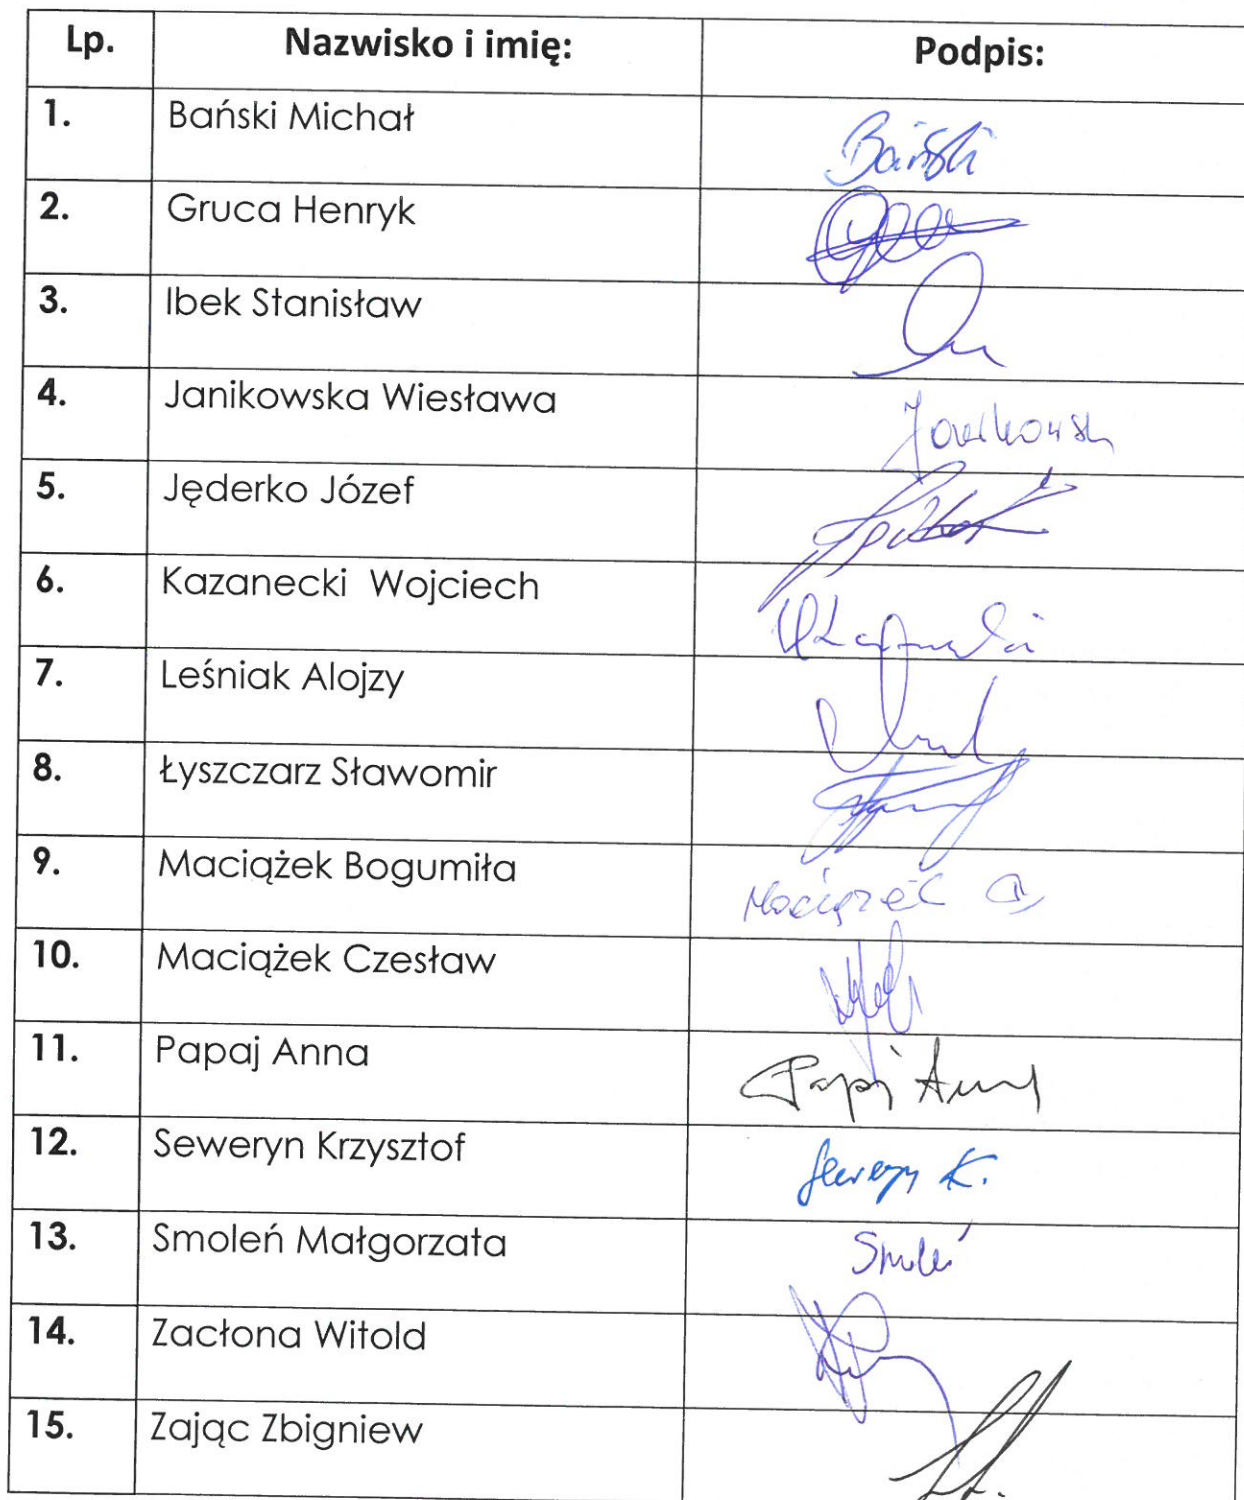 Lp. Nazwisko i imię: Podpis:
1. Bański Michał Bański
2. Gruca Henryk
3. Ibek Stanisław
4. Janikowska Wiesława
5. Jęderko Józef
6. Kazanecki Wojciech
7. Leśniak Alojzy
8. Łyszczarz Sławomir
9. Maciążek Bogumiła
10. Maciążek Czesław
11. Papaj Anna
12. Seweryn Krzysztof Seweryn K.
13. Smoleń Małgorzata Smoleń
14. Zacłona Witold
15. Zając Zbigniew